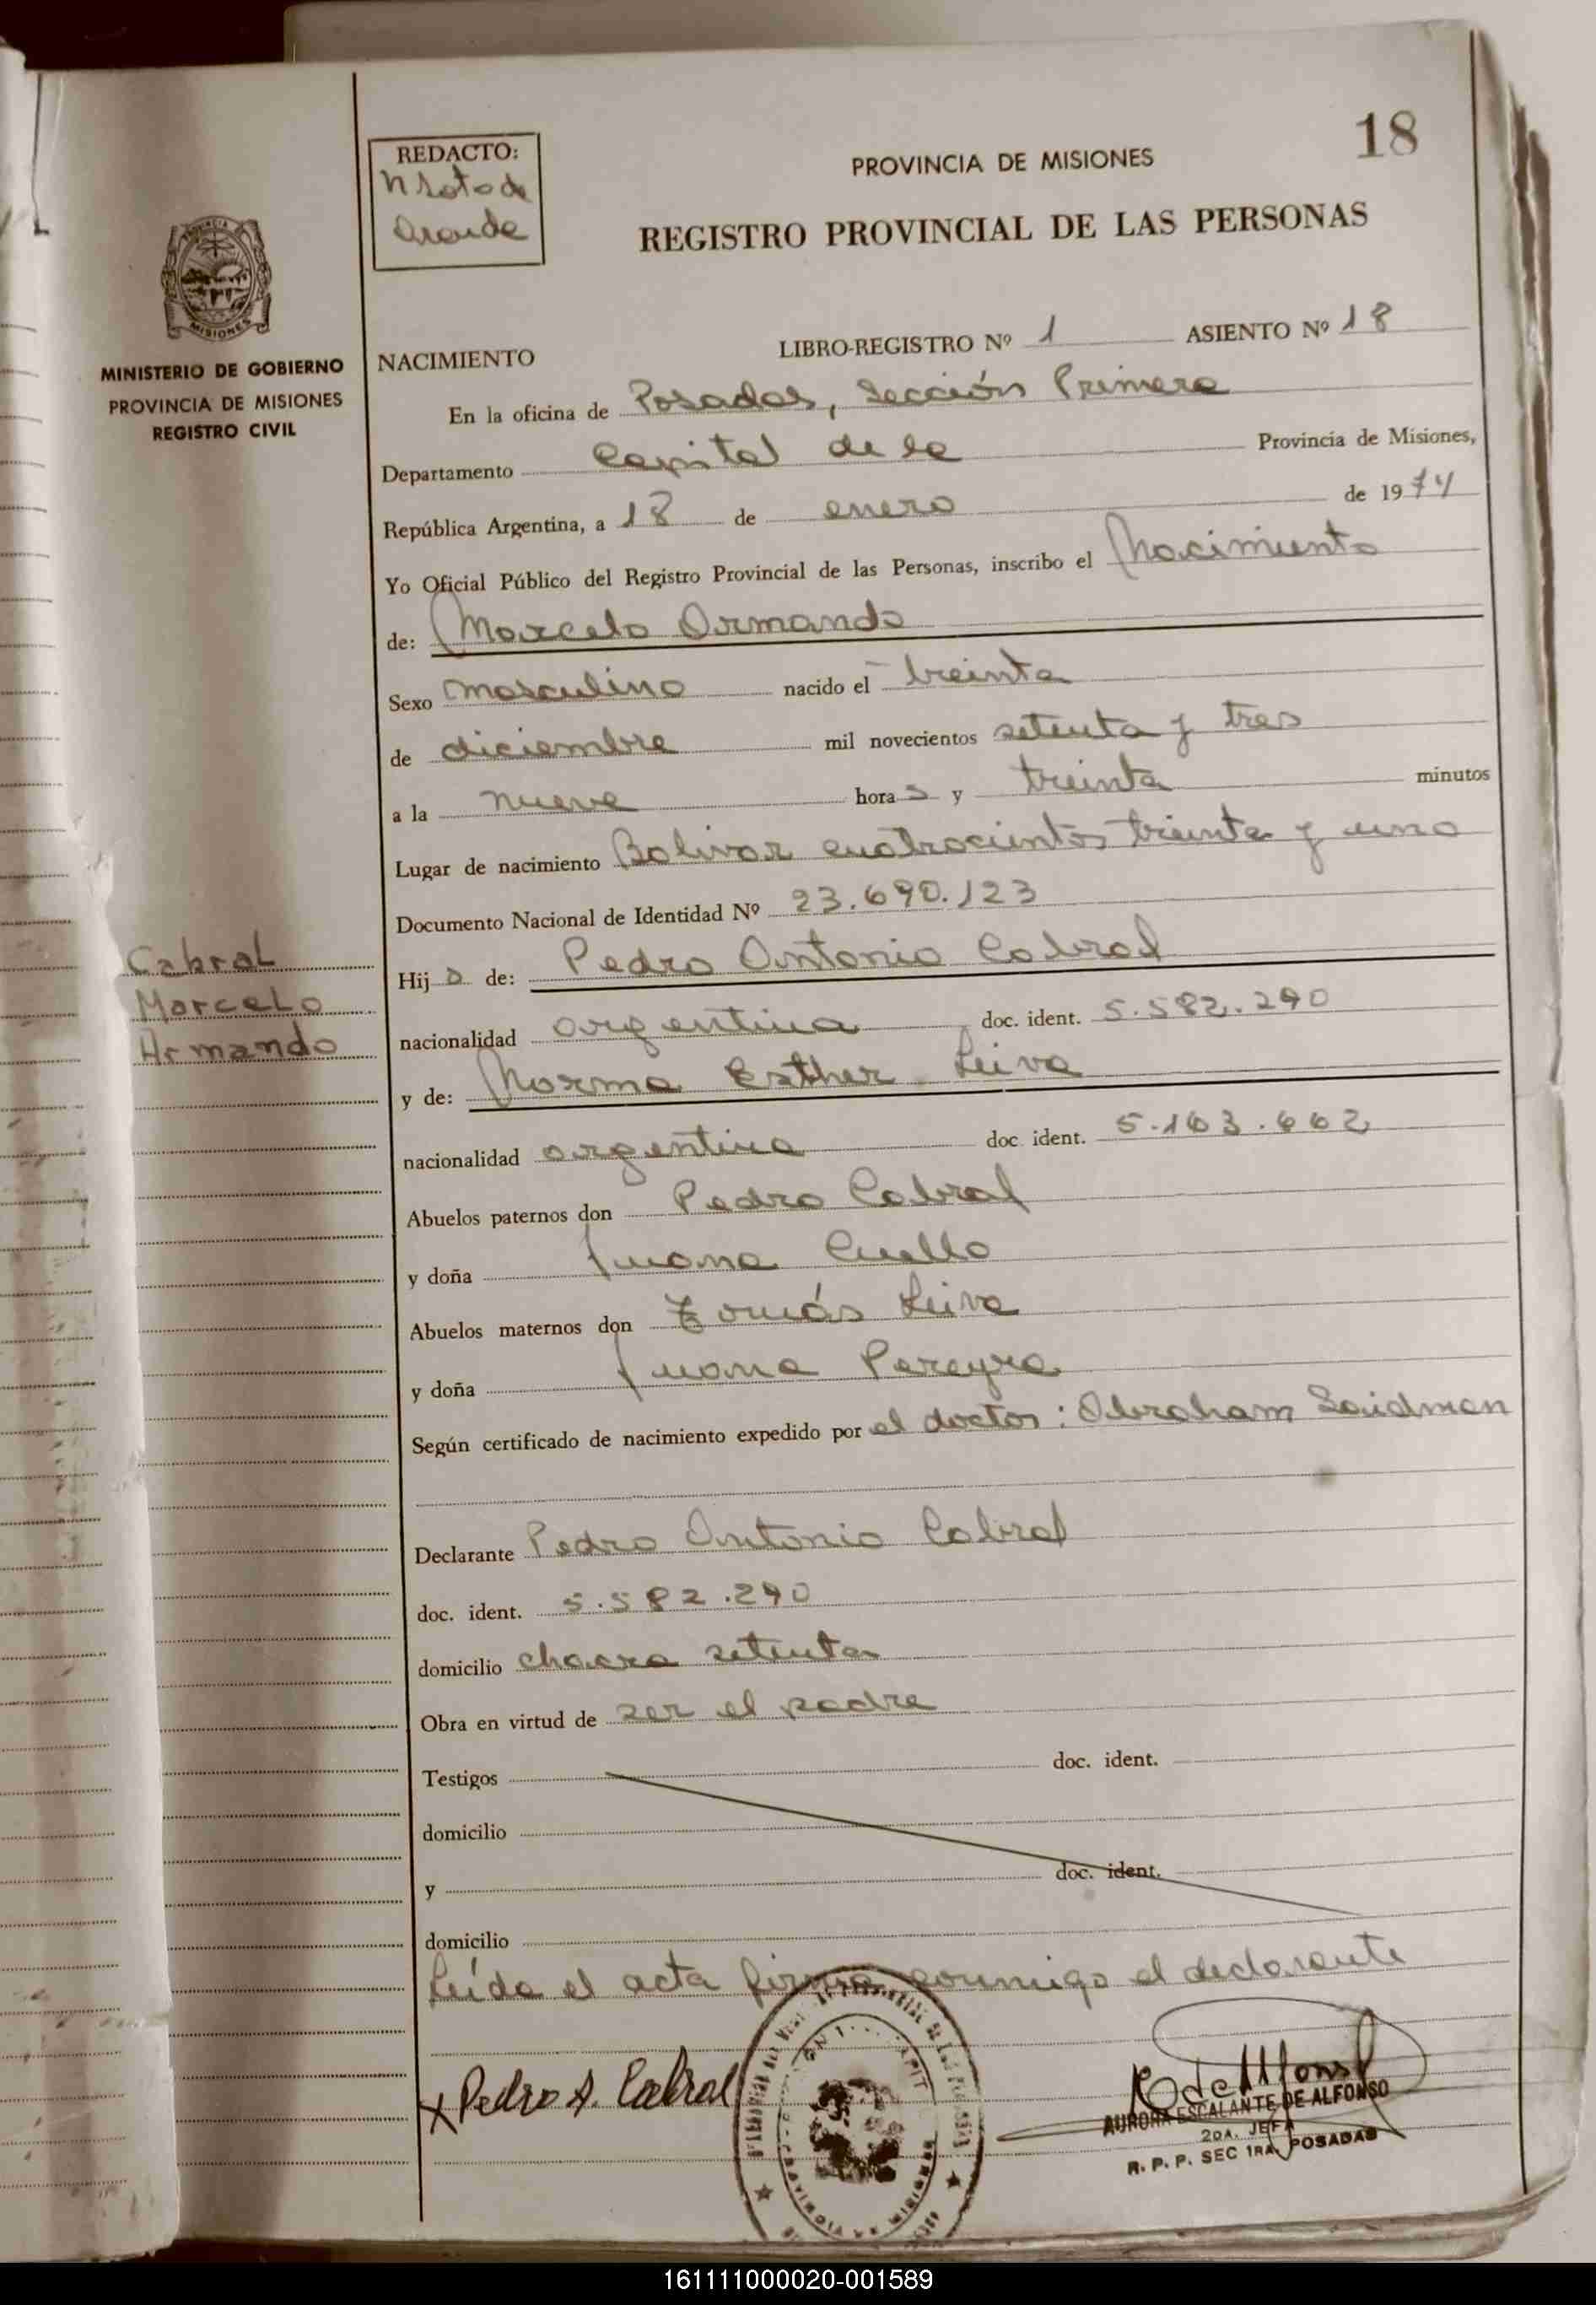 18
REDACTO:
N Soto de
PROVINCIA DE MISIONES
REGISTRO PROVINCIAL DE LAS PERSONAS
MISIONES
MINISTERIO DE GOBIERNO
PROVINCIA DE MISIONES
REGISTRO CIVIL
NACIMIENTO LIBRO-REGISTRO Nº 1 ASIENTO Nº 18
En la oficina de Posadas, Sección Primera
Departamento Capital de la Provincia de Misiones,
República Argentina, a 18 de enero de 1974
Yo Oficial Público del Registro Provincial de las Personas, inscribo el Nacimiento
de: Marcelo Armando
Sexo masculino nacido el treinta
de diciembre mil novecientos setenta y tres
a la nueve horas y treinta minutos
Lugar de nacimiento Bolivar cuatrocientos treinta y uno
Documento Nacional de Identidad Nº 23.690.123
Cabral
Marcelo
Armando
Hijo de: Pedro Antonio Cabral
nacionalidad argentina doc. ident. 5.582.290
y de: Norma Esther Leiva
nacionalidad argentina doc. ident. 5.163.662
Abuelos paternos don Pedro Cabral
y doña Juana Cuello
Abuelos maternos don Tomás Leiva
y doña Juana Pereyra
Según certificado de nacimiento expedido por el doctor: Abraham Saidman
Declarante Pedro Antonio Cabral
doc. ident. 5.582.290
domicilio chacra setenta
Obra en virtud de ser el padre
Testigos doc. ident.
domicilio
y doc. ident.
domicilio
Leída el acta firma conmigo el declarante
x Pedro A. Cabral
A de Alfonso
AURORA ESCALANTE DE ALFONSO
2DA. JEFA
R. P. P. SEC 1RA. POSADAS
161111000020-001589